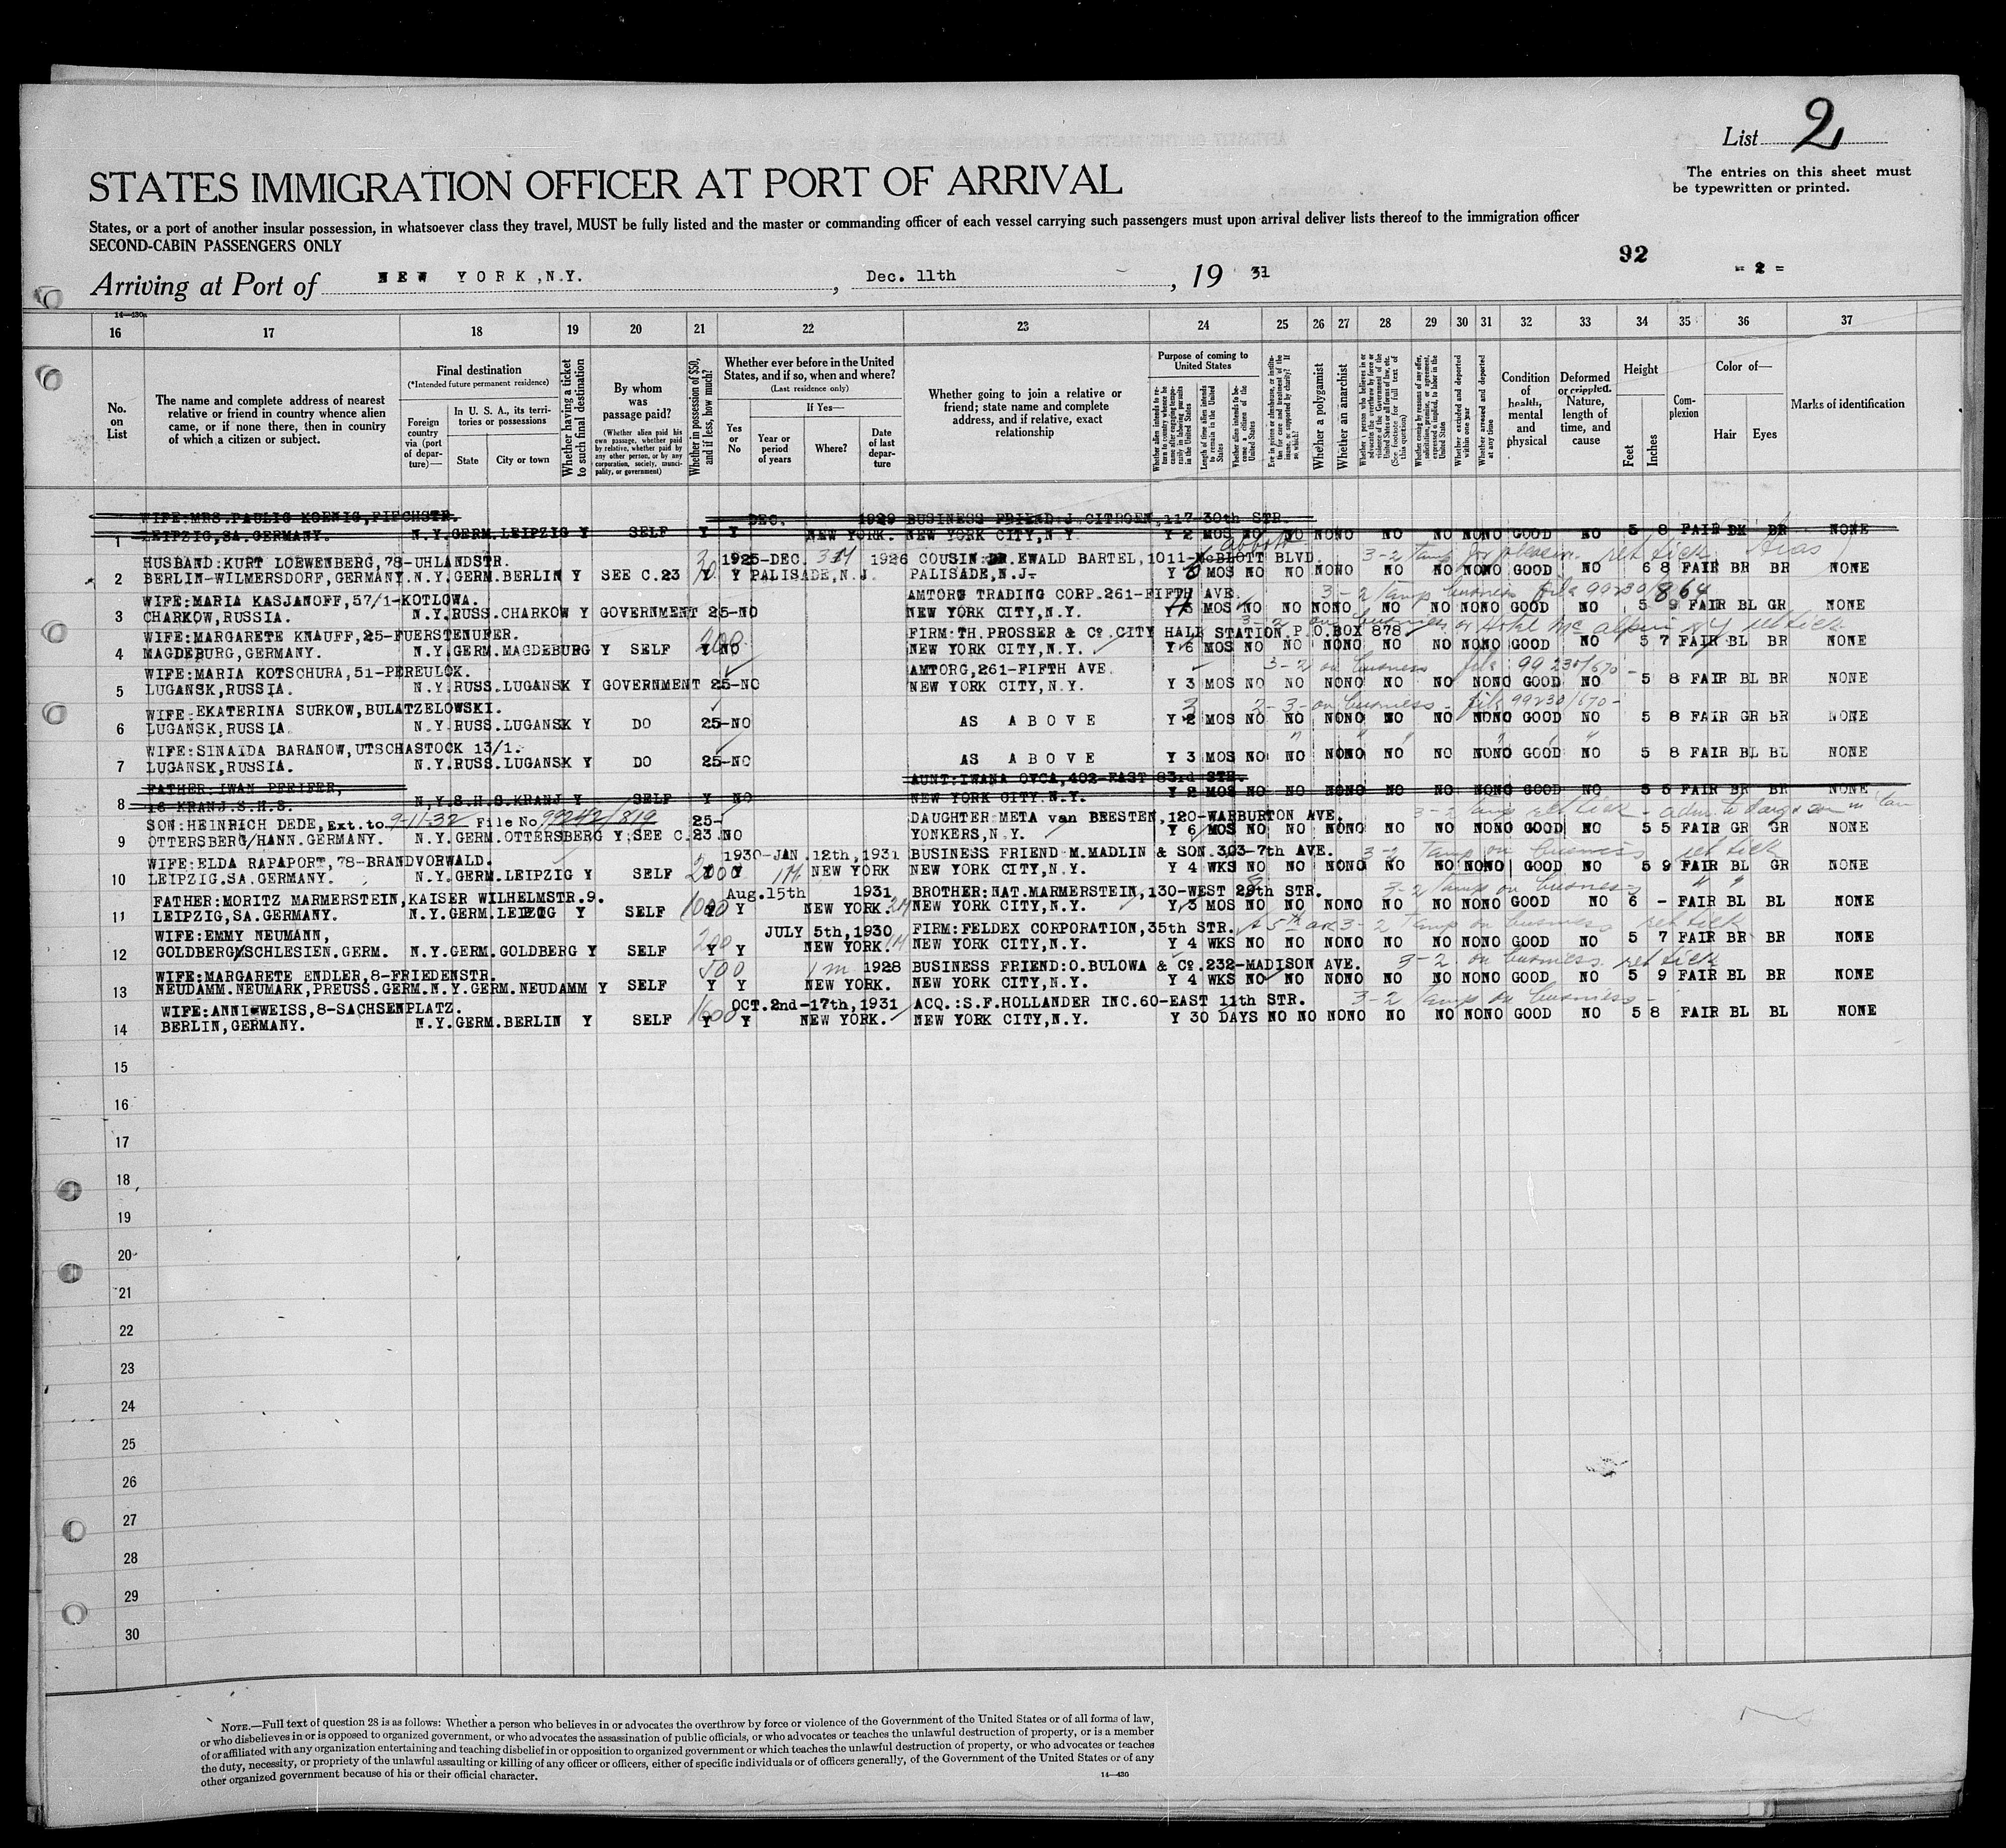 List 2
The entries on this sheet must
be typewritten or printed.
STATES IMMIGRATION OFFICER AT PORT OF ARRIVAL
States, or a port of another insular possession, in whatsoever class they travel, MUST be fully listed and the master or commanding officer of each vessel carrying such passengers must upon arrival deliver lists thereof to the immigration officer
SECOND-CABIN PASSENGERS ONLY
92
= 2 =
Arriving at Port of NEW YORK, N.Y., Dec. 11th, 19 31
14—430
16 17 18 19 20 21 22 23 24 25 26 27 28 29 30 31 32 33 34 35 36 37
No. on List
The name and complete address of nearest relative or friend in country whence alien came, or if none there, then in country of which a citizen or subject.
Final destination
(*Intended future permanent residence)
Foreign country via (port of departure)—
In U. S. A., its territories or possessions
State
City or town
Whether having a ticket to such final destination
By whom was passage paid?
(Whether alien paid his own passage, whether paid by relative, whether paid by any other person, or by any corporation, society, municipality, or government)
Whether in possession of $50, and if less, how much?
Whether ever before in the United States, and if so, when and where?
(Last residence only)
Yes or No
If Yes—
Year or period of years
Where?
Date of last departure
Whether going to join a relative or friend; state name and complete address, and if relative, exact relationship
Purpose of coming to United States
Length of time alien intends to remain in the United States
Whether alien intends to become a citizen of the United States
Whether a polygamist
Whether an anarchist
Whether excluded and deported within one year
Whether arrested and deported at any time
Condition of health, mental and physical
Deformed or crippled. Nature, length of time, and cause
Height
Feet
Inches
Complexion
Color of—
Hair
Eyes
Marks of identification
WIFE: MRS. KOENIG, DEC. 1929 BUSINESS FRIEND J. CITROEN, 117-30th STR.
1 LEIPZIG, SA. GERMANY. N.Y. GERM. LEIPZIG Y SELF Y Y NEW YORK. NEW YORK CITY, N.Y. Y 2 MOS NO NO NONO NO NO NONO GOOD NO 5 8 FAIR BR NONE
HUSBAND: KURT LOEWENBERG, 78-UHLANDSTR. 1925-DEC. 1926 COUSIN: DR. EWALD BARTEL, 1011- BLVD.
2 BERLIN-WILMERSDORF, GERMANY. N.Y. GERM. BERLIN Y SEE C.23 Y PALISADE, N.J. PALISADE, N.J. Y 6 MOS NO NO NONO NO NO NONO GOOD NO 6 8 FAIR BR BR NONE
WIFE: MARIA KASJANOFF, 57/1-KOTLOWA. AMTORG TRADING CORP. 261-FIFTH AVE. 3-2 temp business file 99230/864
3 CHARKOW, RUSSIA. N.Y. RUSS. CHARKOW Y GOVERNMENT 25-NO NEW YORK CITY, N.Y. MOS NO NO NONO NO NO NONO GOOD NO 5 9 FAIR BL GR NONE
WIFE: MARGARETE KNAUFF, 25-FUERSTENUFER. 200 FIRM: TH. PROSSER & Co. CITY HALL STATION P.O. BOX 878
4 MAGDEBURG, GERMANY. N.Y. GERM. MAGDEBURG Y SELF Y NO NEW YORK CITY, N.Y. Y 6 MOS NO NO NONO NO NO NONO GOOD NO 5 7 FAIR BL BR NONE
WIFE: MARIA KOTSCHURA, 51-PEREULOK. AMTORG, 261-FIFTH AVE. 3-2 on business file 99230/670
5 LUGANSK, RUSSIA. N.Y. RUSS. LUGANSK Y GOVERNMENT 25-NO NEW YORK CITY, N.Y. Y 3 MOS NO NO NONO NO NO NONO GOOD NO 5 8 FAIR BL BR NONE
WIFE: EKATERINA SURKOW, BULATZELOWSKI. on business - file 99230/670-
6 LUGANSK, RUSSIA. N.Y. RUSS. LUGANSK Y DO 25-NO AS ABOVE Y MOS NO NO NONO NO NO NONO GOOD NO 5 8 FAIR GR BR NONE
WIFE: SINAIDA BARANOW, UTSCHASTOCK 13/1.
7 LUGANSK, RUSSIA. N.Y. RUSS. LUGANSK Y DO 25-NO AS ABOVE Y 3 MOS NO NO NONO NO NO NONO GOOD NO 5 8 FAIR BL BL NONE
FATHER: IWAN PFEIFER, AUNT: IWANA OVCA, 402-EAST 83rd STR.
8 16 KRANJ. S.H.S. N.Y. S.H.S. KRANJ Y SELF Y NO NEW YORK CITY. N.Y. Y 2 MOS NO NO NONO NO NO NONO GOOD NO 5 5 FAIR BR BR NONE
SON: HEINRICH DEDE, Ext. to 9-11-32 File No. 99242/819 25- DAUGHTER META van BEESTEN, 120-WARBURTON AVE.
9 OTTERSBERG/HANN. GERMANY. N.Y. GERM. OTTERSBERG Y SEE C.23 NO YONKERS, N.Y. Y 6 MOS NO NO NONO NO NO NONO GOOD NO 5 5 FAIR GR GR NONE
WIFE: ELDA RAPAPORT, 78-BRANDVORWALD. 1930-JAN. 12th, 1931 BUSINESS FRIEND M. MADLIN & SON. 303-7th AVE. 3-2 temp on business ret tick
10 LEIPZIG. SA. GERMANY. N.Y. GERM. LEIPZIG Y SELF Y Y NEW YORK NEW YORK CITY, N.Y. Y 4 WKS NO NO NONO NO NO NONO GOOD NO 5 9 FAIR BL GR NONE
FATHER: MORITZ MARMERSTEIN, KAISER WILHELMSTR. 9. Aug. 15th 1931 BROTHER: NAT. MARMERSTEIN, 130-WEST STR. 3-2 temp on business " "
11 LEIPZIG, SA. GERMANY. N.Y. GERM. LEIPZIG Y SELF 1000 Y Y NEW YORK. NEW YORK CITY, N.Y. Y 3 MOS NO NO NONO NO NO NONO GOOD NO 6 - FAIR BL BL NONE
WIFE: EMMY NEUMANN, JULY 5th, 1930 FIRM: FELDEX CORPORATION, 35th STR. & 5th ave 3-2 temp on business ret tick
12 GOLDBERG/SCHLESIEN. GERM. N.Y. GERM. GOLDBERG Y SELF 200 Y Y NEW YORK. NEW YORK CITY, N.Y. Y 4 WKS NO NO NONO NO NO NONO GOOD NO 5 7 FAIR BR BR NONE
WIFE: MARGARETE ENDLER, 8-FRIEDENSTR. 500 1 m 1928 BUSINESS FRIEND: O. BULOWA & Co. 232-MADISON AVE. 3-2 on business ret tick
13 NEUDAMM. NEUMARK, PREUSS. GERM. N.Y. GERM. NEUDAMM Y SELF Y Y NEW YORK. NEW YORK CITY, N.Y. Y 4 WKS NO NO NONO NO NO NONO GOOD NO 5 9 FAIR BL BR NONE
WIFE: ANNI WEISS, 8-SACHSENPLATZ. 1600 OCT. 2nd-17th, 1931 ACQ.: S.F. HOLLANDER INC. 60-EAST 11th STR. 3-2 temp on business -
14 BERLIN, GERMANY. N.Y. GERM. BERLIN Y SELF Y Y NEW YORK. NEW YORK CITY, N.Y. Y 30 DAYS NO NO NONO NO NO NONO GOOD NO 5 8 FAIR BL BL NONE
15
16
17
18
19
20
21
22
23
24
25
26
27
28
29
30
NOTE.—Full text of question 28 is as follows: Whether a person who believes in or advocates the overthrow by force or violence of the Government of the United States or of all forms of law,
or who disbelieves in or is opposed to organized government, or who advocates the assassination of public officials, or who advocates or teaches the unlawful destruction of property, or is a member
of or affiliated with any organization entertaining and teaching disbelief in or opposition to organized government or which teaches the unlawful destruction of property, or who advocates or teaches
the duty, necessity, or propriety of the unlawful assaulting or killing of any officer or officers, either of specific individuals or of officers generally, of the Government of the United States or of any
other organized government because of his or their official character.
14—430